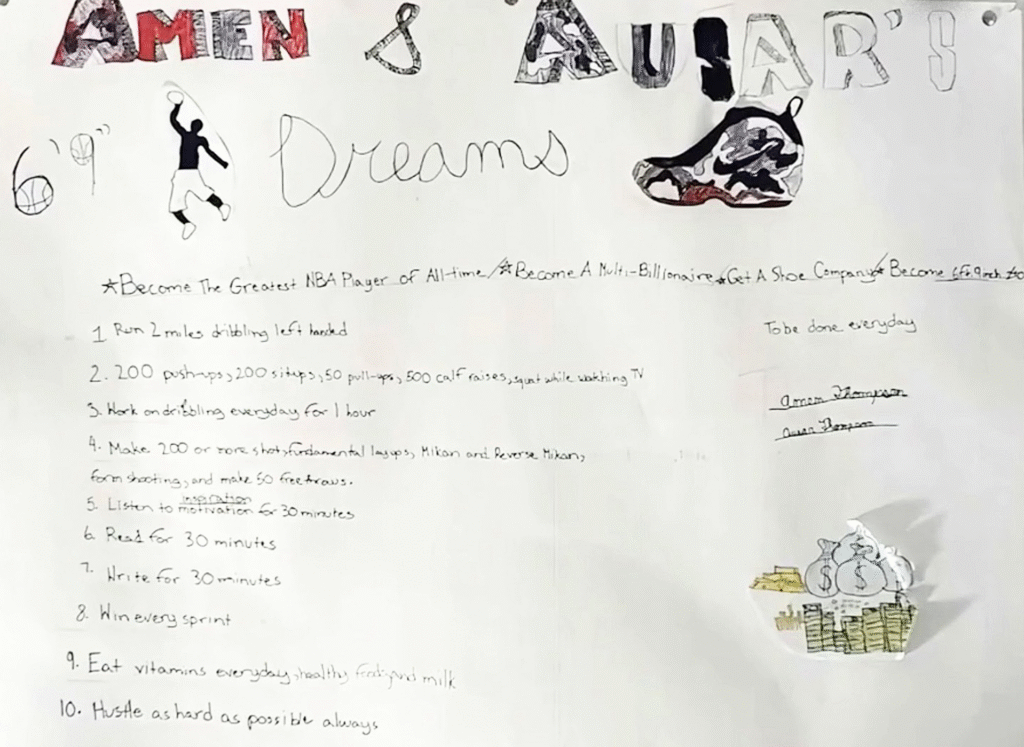 AMEN & AUSAR'S
6'9" Dreams
☆Become The Greatest NBA Player of All-time/☆Become A Multi-Billionaire☆Get A Shoe Company☆Become 6ft. 9inch
1 Run 2 miles dribbling left handed
To be done everyday
2. 200 push-ups, 200 situps, 50 pull-ups, 500 calf raises, squat while watching TV
Amen Thompson
3. Work on dribbling everyday for 1 hour
Ausar Thompson
4. Make 200 or more shots, fundamental layups, Mikan and Reverse Mikan,
form shooting, and make 50 free thraws.
5. Listen to motivation inspiration for 30 minutes
6. Read for 30 minutes
7. Write for 30 minutes
8. Win every sprint
9. Eat vitamins everyday, healthy foods, and milk
10. Hustle as hard as possible always
$ $